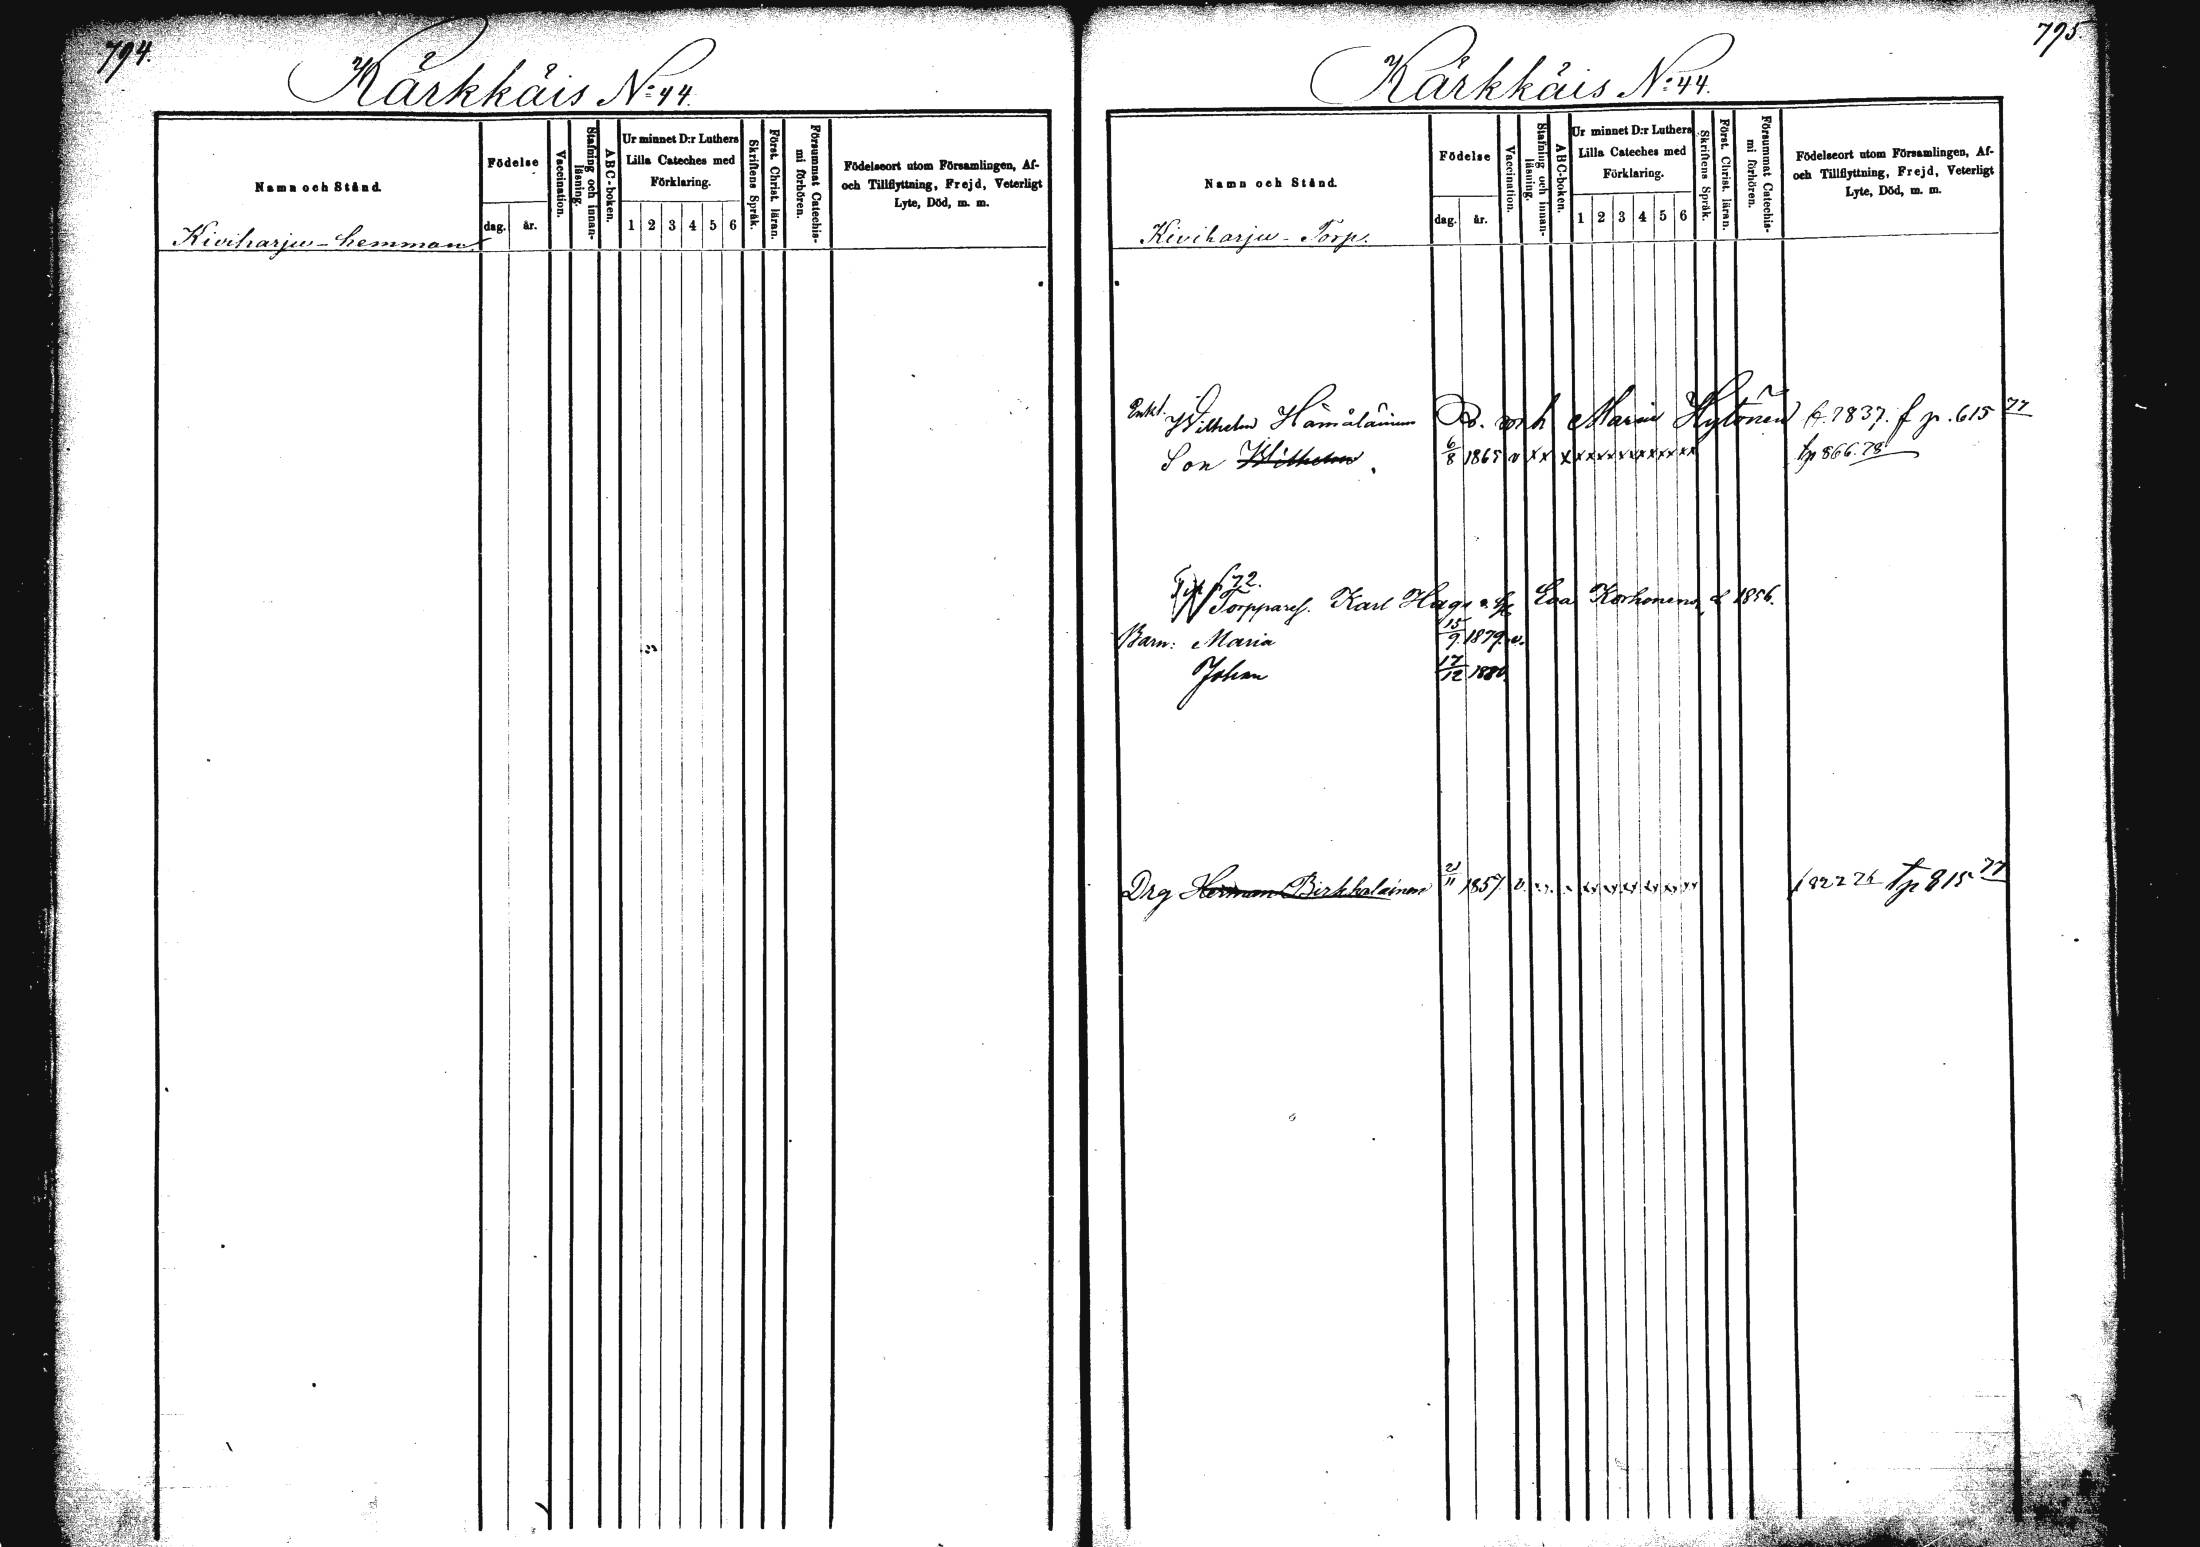 794.
Kärkkäis No: 44.
Namn och Stånd.
Födelse
dag.
år.
Vaccination.
Stafning och innan-
läsning.
ABC-boken.
Ur minnet D:r Luthers
Lilla Cateches med
Förklaring.
1 2 3 4 5 6
Skriftens Språk.
Först. Christ. läran.
Försummat Catechis-
mi förhören.
Födelseort utom Församlingen, Af-
och Tillflyttning, Frejd, Veterligt
Lyte, Död, m. m.
Kiviharju - hemman
795.
Kärkkäis No: 44.
Namn och Stånd.
Födelse
dag.
år.
Vaccination.
Stafning och innan-
läsning.
ABC-boken.
Ur minnet D:r Luthers
Lilla Cateches med
Förklaring.
1 2 3 4 5 6
Skriftens Språk.
Först. Christ. läran.
Försummat Catechis-
mi förhören.
Födelseort utom Församlingen, Af-
och Tillflyttning, Frejd, Veterligt
Lyte, Död, m. m.
Kiviharju - Torp.
Enkl. Wilhelm Hämäläinen Maria Hytönen f. 1837. f p. 615 77
Son Wilhelm 6/8 1865 v x x x x x x x x x x x x x x x tp 866. 78
72.
Torppares. Karl Haga Eva Korhonen f 1856.
Barn: Maria 15/9 1879. v.
Johan 17/12 1880.
Drg Herman Birkkalainen 21/11 1857. v. f 822 76 tp 815 77